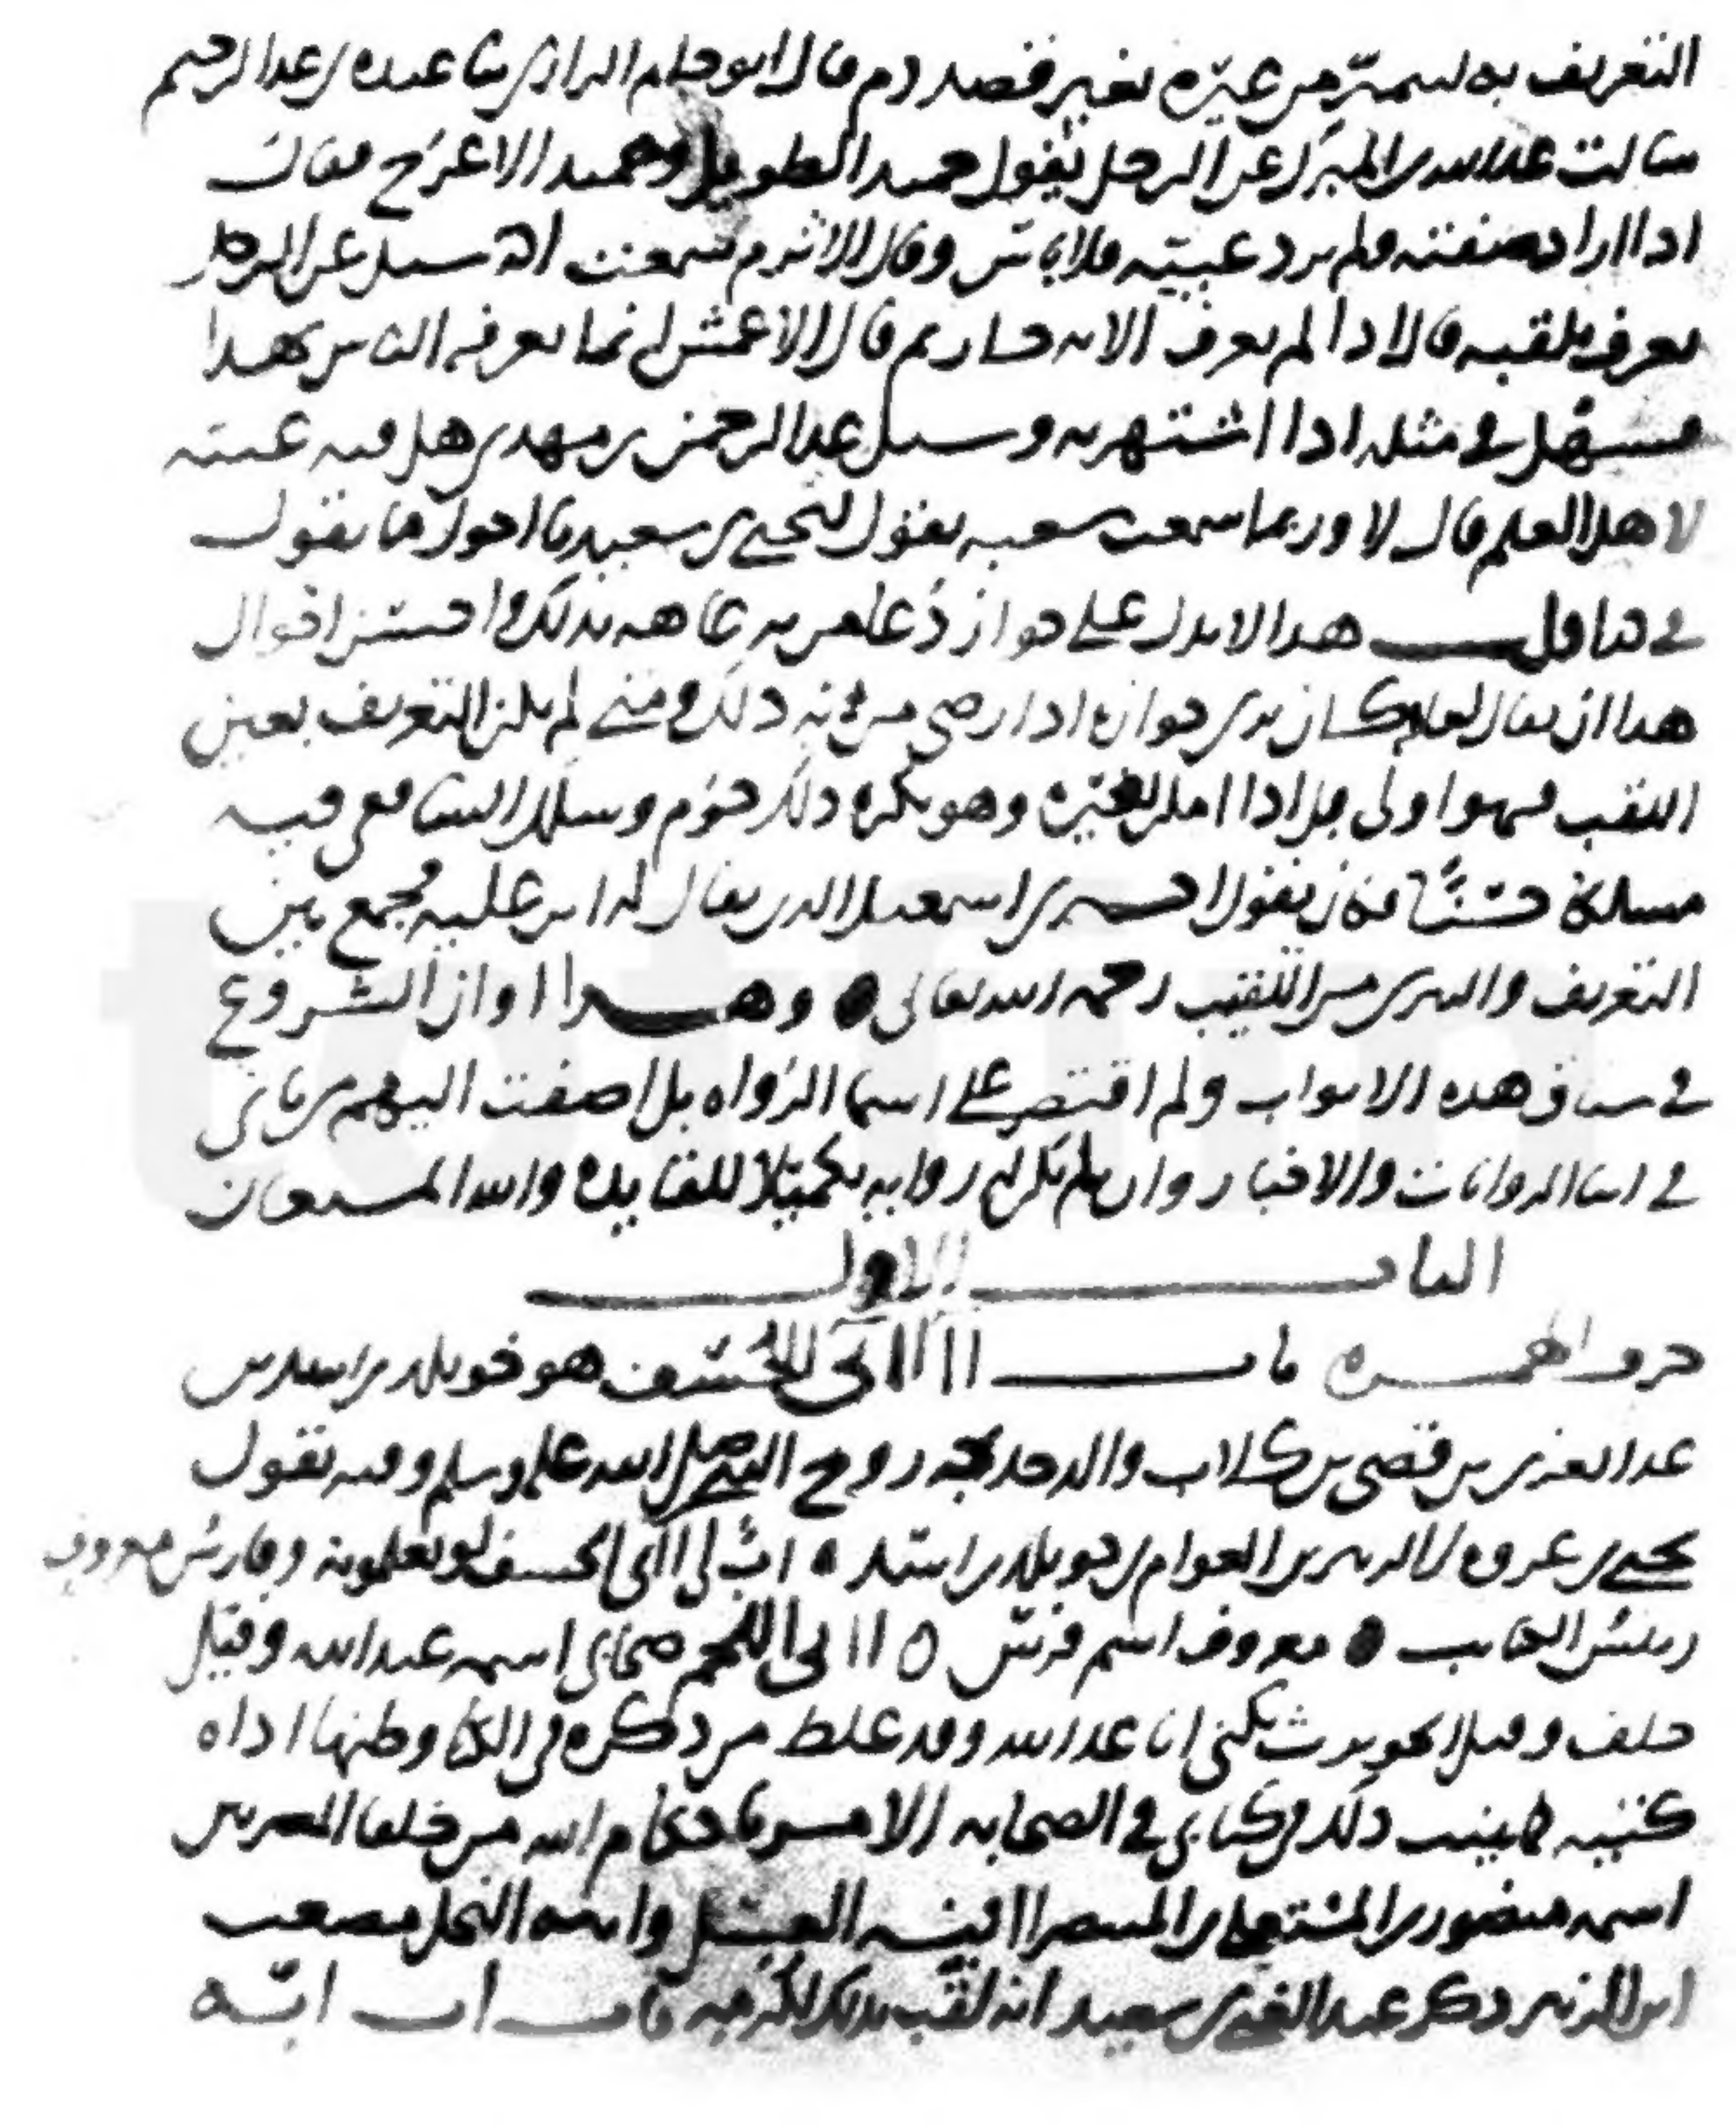 التعريف به ليتميز من غيره بغير قصد ذم قال ابو حاتم الرازي ثنا عبده بن عبد الرحيم
سالت عبد الله بن المبارك عن الرجل يقول حميد الطويل وحميد الاعرج فقال
اذا اراد صفته ولم يرد عيبته فلا باس وقال الاثرم سمعت احمد سيل عن الرجل
يعرف بلقبه قال اذا لم يعرف الا به جاز ثم قال الاعمش انما يعرفه الناس بهذا
فسهل في مثله اذا اشتهر به وسيل عبد الرحمن بن مهدي هل فيه غيبة
لاهل العلم قال لا وربما سمعت شعبه يقول ليحيى بن سعيد يا احول ما تقول
في هذا قلت هذا لا يدل على جواز دعا من به عاهه بذلك واحسن احوال
هذا ان يقال لعله كان يرى جوازه اذا رضي من به ذلك ومتى لم يكن التعريف بعين
اللقب فهو اولى بل اذا امكن بغيره وهو يكره ذلك حرم وسلك الشافعي فيه
مسلكا حسنا فكان يقول اخبرني اسمعيل الذي يقال له ابن عليه فجمع بين
التعريف والتبري من التلقيب رحمه الله تعالى وهذا اوان الشروع
في سياق هذه الابواب ولم اقتصر على اسما الرواه بل اضفت اليهم من ياتي
في اثنا الروايات والاخبار وان لم تكن له روايه تكميلا للفايده والله المستعان
الباب الاول
حرف الهمزه باب اا آبي الخسف هو خويلد بن اسد بن
عبد العزى بن قصي بن كلاب والد خديجه زوج النبي صلى الله عليه وسلم وفيه يقول
يحيى بن عروه بن الزبير بن العوام بن خويلد بن اسد اب لي آبي الخسف لو تعلمونه وفارس معروف
رييس الكتايب معروف اسم فرس اا آبي اللحم صحابي اسمه عبد الله وقيل
خلف وقيل الحويرث يكنى ابا عبد الله وقد غلط من ذكره في الكنى وظنها اداه
كنيه كما بينت ذلك في كتابي في الصحابه الامر باحكام الله من خلفا المصريين
اسمه منصور بن المستعلي بن المستنصر اانيه النحل وانيه النحل مصعب
ابن الزبير ذكر عبد الغني بن سعيد انه لقب بذلك لكرمه باب اب ابه